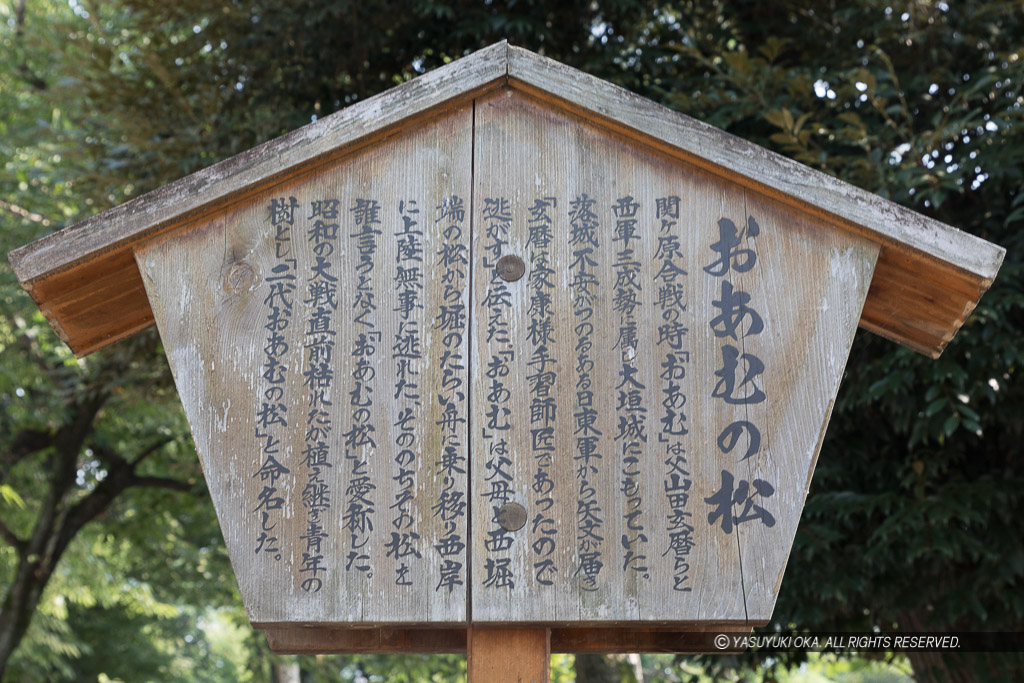 おあむの松
関ヶ原合戦の時「おあむ」は父山田玄暦らと
西軍三成勢に属し大垣城にこもっていた。
落城不安がつのるある日東軍から矢文が届き
「玄暦は家康様手習師匠であったので
逃がす」と伝えた「おあむ」は父母と西堀
端の松から堀のたらい舟に乗り移り西岸
に上陸無事に逃れた。そののちその松を
誰言うとなく「おあむの松」と愛称した。
昭和の大戦直前枯れたが植え継ぎ青年の
樹とし「二代おあむの松」と命名した。
© YASUYUKI OKA. ALL RIGHTS RESERVED.